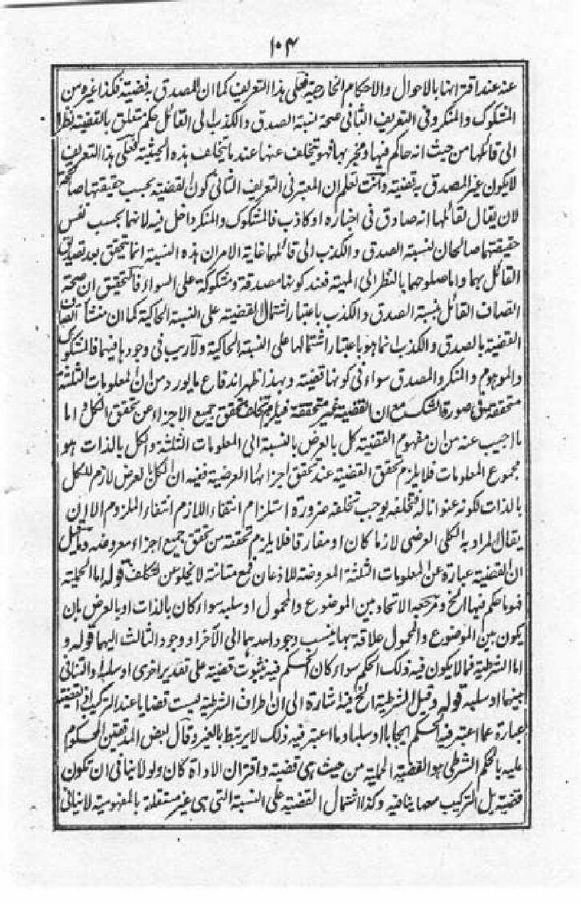 ١٠٤
عنه عند اقترانها بالاحوال والاحكام الخارجية فعلى هذا التعريف كما ان المصدق به قضية فكذا غيره من
المشكوك والمنكر وفى التعريف الثانى صحة نسبة الصدق والكذب الى القائل حكم متعلق بالقضية نظرا
الى قائلها من حيث انه حاكم فيها ومخبر بها فهو تخلف عنها عند ما يتخلف هذه الحيثية فعلى هذا التعريف
لا يكون غير المصدق به قضية وانت تعلم ان المعتبر فى التعريف الثانى كون القضية بحسب حقيقتها صالحة
لان يقال لقائلها انه صادق فى اخباره او كاذب فالمشكوك والمنكر داخل فيه لانهما بحسب نفس
حقيقتهما صالحان لنسبة الصدق والكذب الى قائلهما غاية الامر ان هذه النسبة انما تتحقق بعد تصديق
القائل بهما واما صلوحهما بالنظر الى المهية فعند كونها مصدقة ومشكوكة على السواء فالتحقيق ان صحة
اتصاف القائل بنسبة الصدق والكذب باعتبار اشتمال القضية على النسبة الحاكية كما ان منشأ اتصاف
القضية بالصدق والكذب انما هو باعتبار اشتمالها على النسبة الحاكية ولا ريب فى وجودها فيهما فالمشكوك
والموهوم والمنكر والمصدق سواء فى كونها قضية وبهذا ظهر اندفاع ما يورد من ان المعلومات الثلثة
متحققة فى صورة الشك مع ان القضية غير متحققة فيلزم تخلف تحقق جميع الاجزاء عن تحقق الكل و اما
ما اجيب عنه من ان مفهوم القضية كل بالعرض بالنسبة الى المعلومات الثلثة والكل بالذات هو
مجموع المعلومات فلا يلزم تحقق القضية عند تحقق اجزائها العرضية ففيه ان الكل بالعرض لازم للكل
بالذات لكونه عنوانا له فتخلفه يوجب تخلفه ضرورة استلزام انتفاء اللازم انتفاء الملزوم الا ان
يقال المراد به الكلى العرضى لازما كان او مفارقا فلا يلزم تحققه من تحقق جميع اجزاء معروضه
ان القضية عبارة عن المعلومات الثلثة المعروضة للاذعان فمع متانته لا يخلو عن تكلف قوله اما الحملية
فهو ما حكم فيها الخ ومرجعه الاتحاد بين الموضوع والمحمول او سلبه سواء كان بالذات او بالعرض بان
يكون بين الموضوع والمحمول علاقة بها ينسب وجود احدهما الى الآخر او وجود الثالث اليهما قوله و
اما الشرطية فما لا يكون فيه ذلك الحكم سواء كان الحكم فيه بثبوت قضية على تقدير اخرى او سلبه والتنافى
بينهما او سلبه قوله وقيل الشرطية الخ فيه اشارة الى ان اطراف الشرطية ليست قضايا عند التركيب اذ القضية
عبارة عما اعتبر فيه الحكم ايجابا او سلبا وما اعتبر فيه ذلك لا يرتبط بالغير وقال بعض المدققين المحكوم
عليه بالحكم الشرطى هو القضية الحملية من حيث هى قضية واقتران الاداة كان ولو لا ينافى ان تكون
قضية بل التركيب معها ينافيه وكذا اشتمال القضية على النسبة التى هى غير مستقلة بالمفهومية لا ينافى